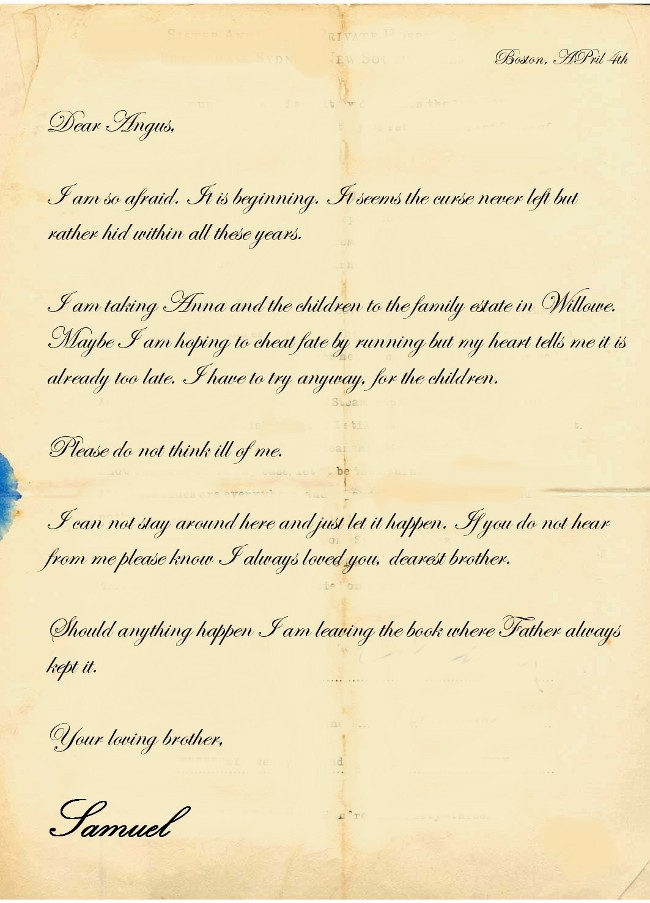 Boston, APril 4th
Dear Angus,
I am so afraid. It is beginning. It seems the curse never left but
rather hid within all these years.
I am taking Anna and the children to the family estate in Willowe.
Maybe I am hoping to cheat fate by running but my heart tells me it is
already too late. I have to try anyway, for the children.
Please do not think ill of me.
be
I can not stay around here and just let it happen. If you do not hear
from me please know I always loved you, dearest brother.
Should anything happen I am leaving the book where Father always
kept it.
Your loving brother,
Samuel